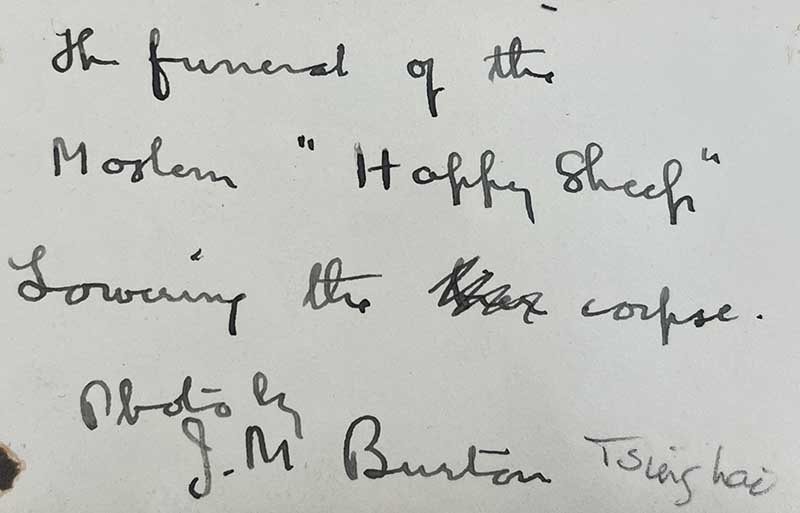 The funeral of the
Moslem " Happy Sheep"
Lowering the corpse.
Photo by
J. M. Burton Tsinghai